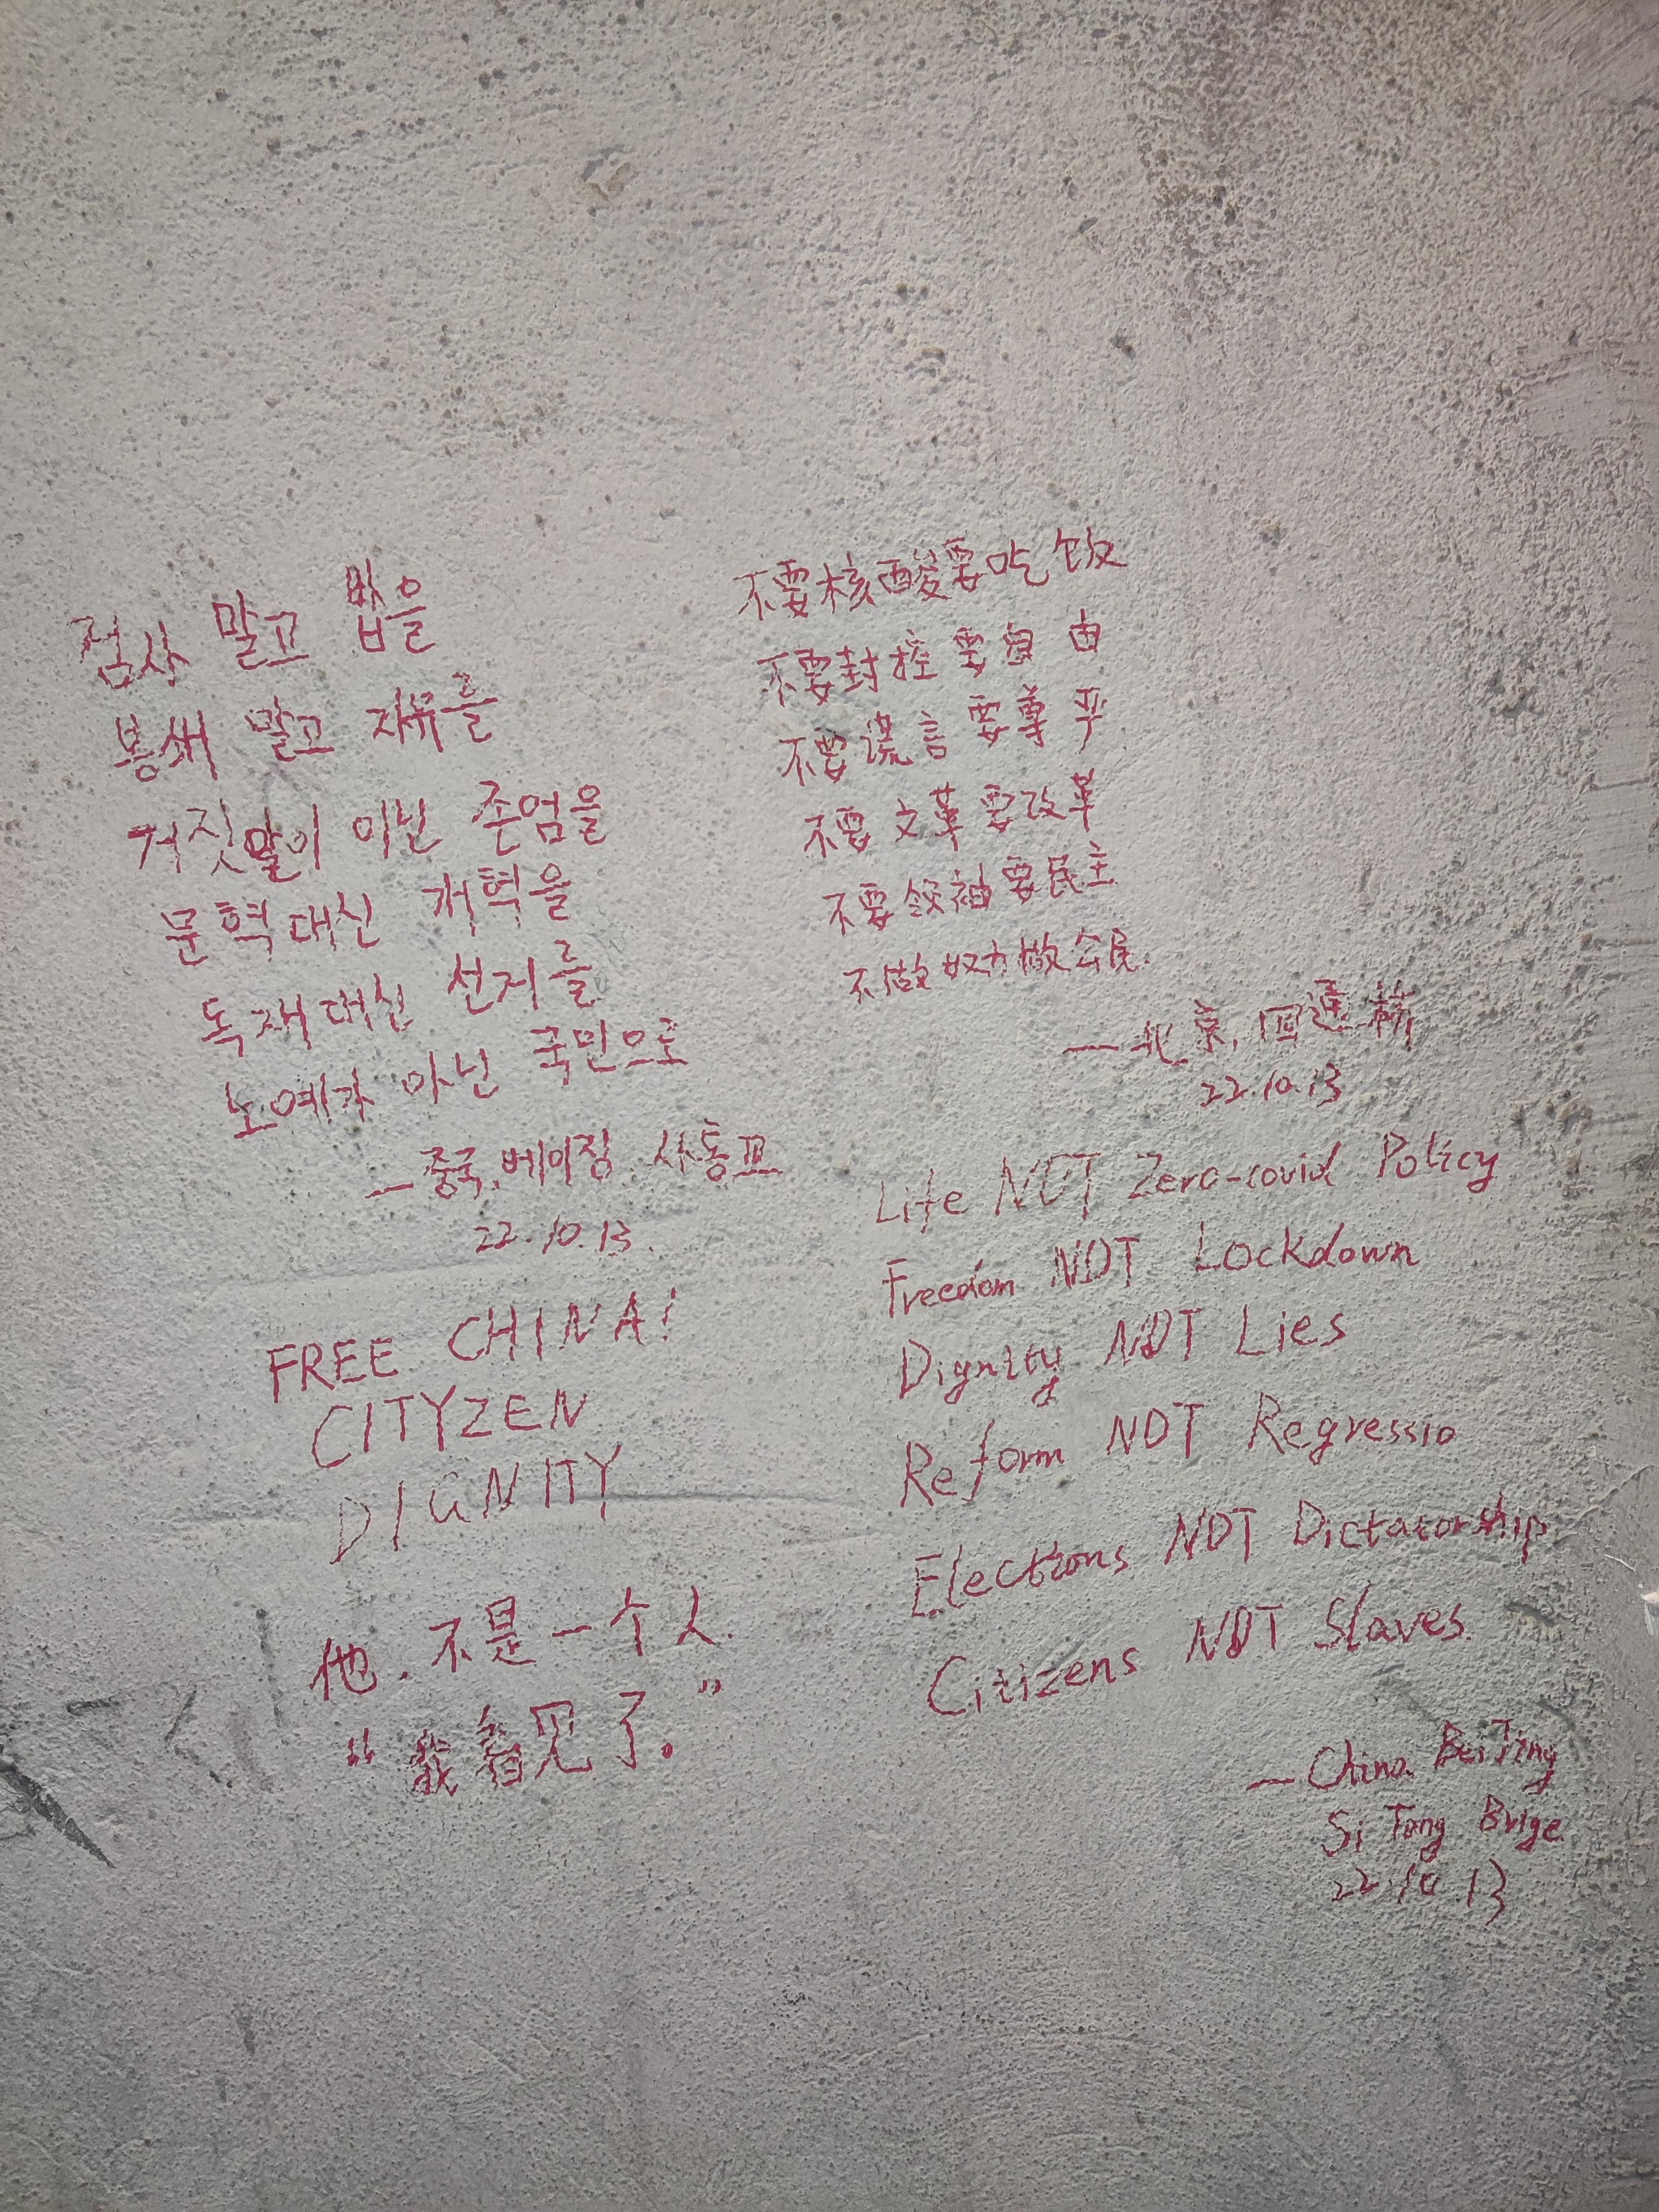 검사 말고 밥을
봉쇄 말고 자유를
거짓말이 아닌 존엄을
문혁 대신 개혁을
독재 대신 선거를
노예가 아닌 국민으로
—중국, 베이징, 사통교
22.10.13.
FREE CHINA!
CITYZEN
DIGNITY
他.不是一个人.
“我看见了。”
不要核酸要吃饭
不要封控要自由
不要谎言要尊严
不要文革要改革
不要领袖要民主
不做奴才做公民.
—北京,四通桥
22.10.13
Life NOT Zero-covid Policy
Freedom NOT Lockdown
Dignity NOT Lies
Reform NOT Regressio
Elections NOT Dictatorship
Citizens NOT Slaves.
—China BeiJing
Si Tong Brige.
22.10.13